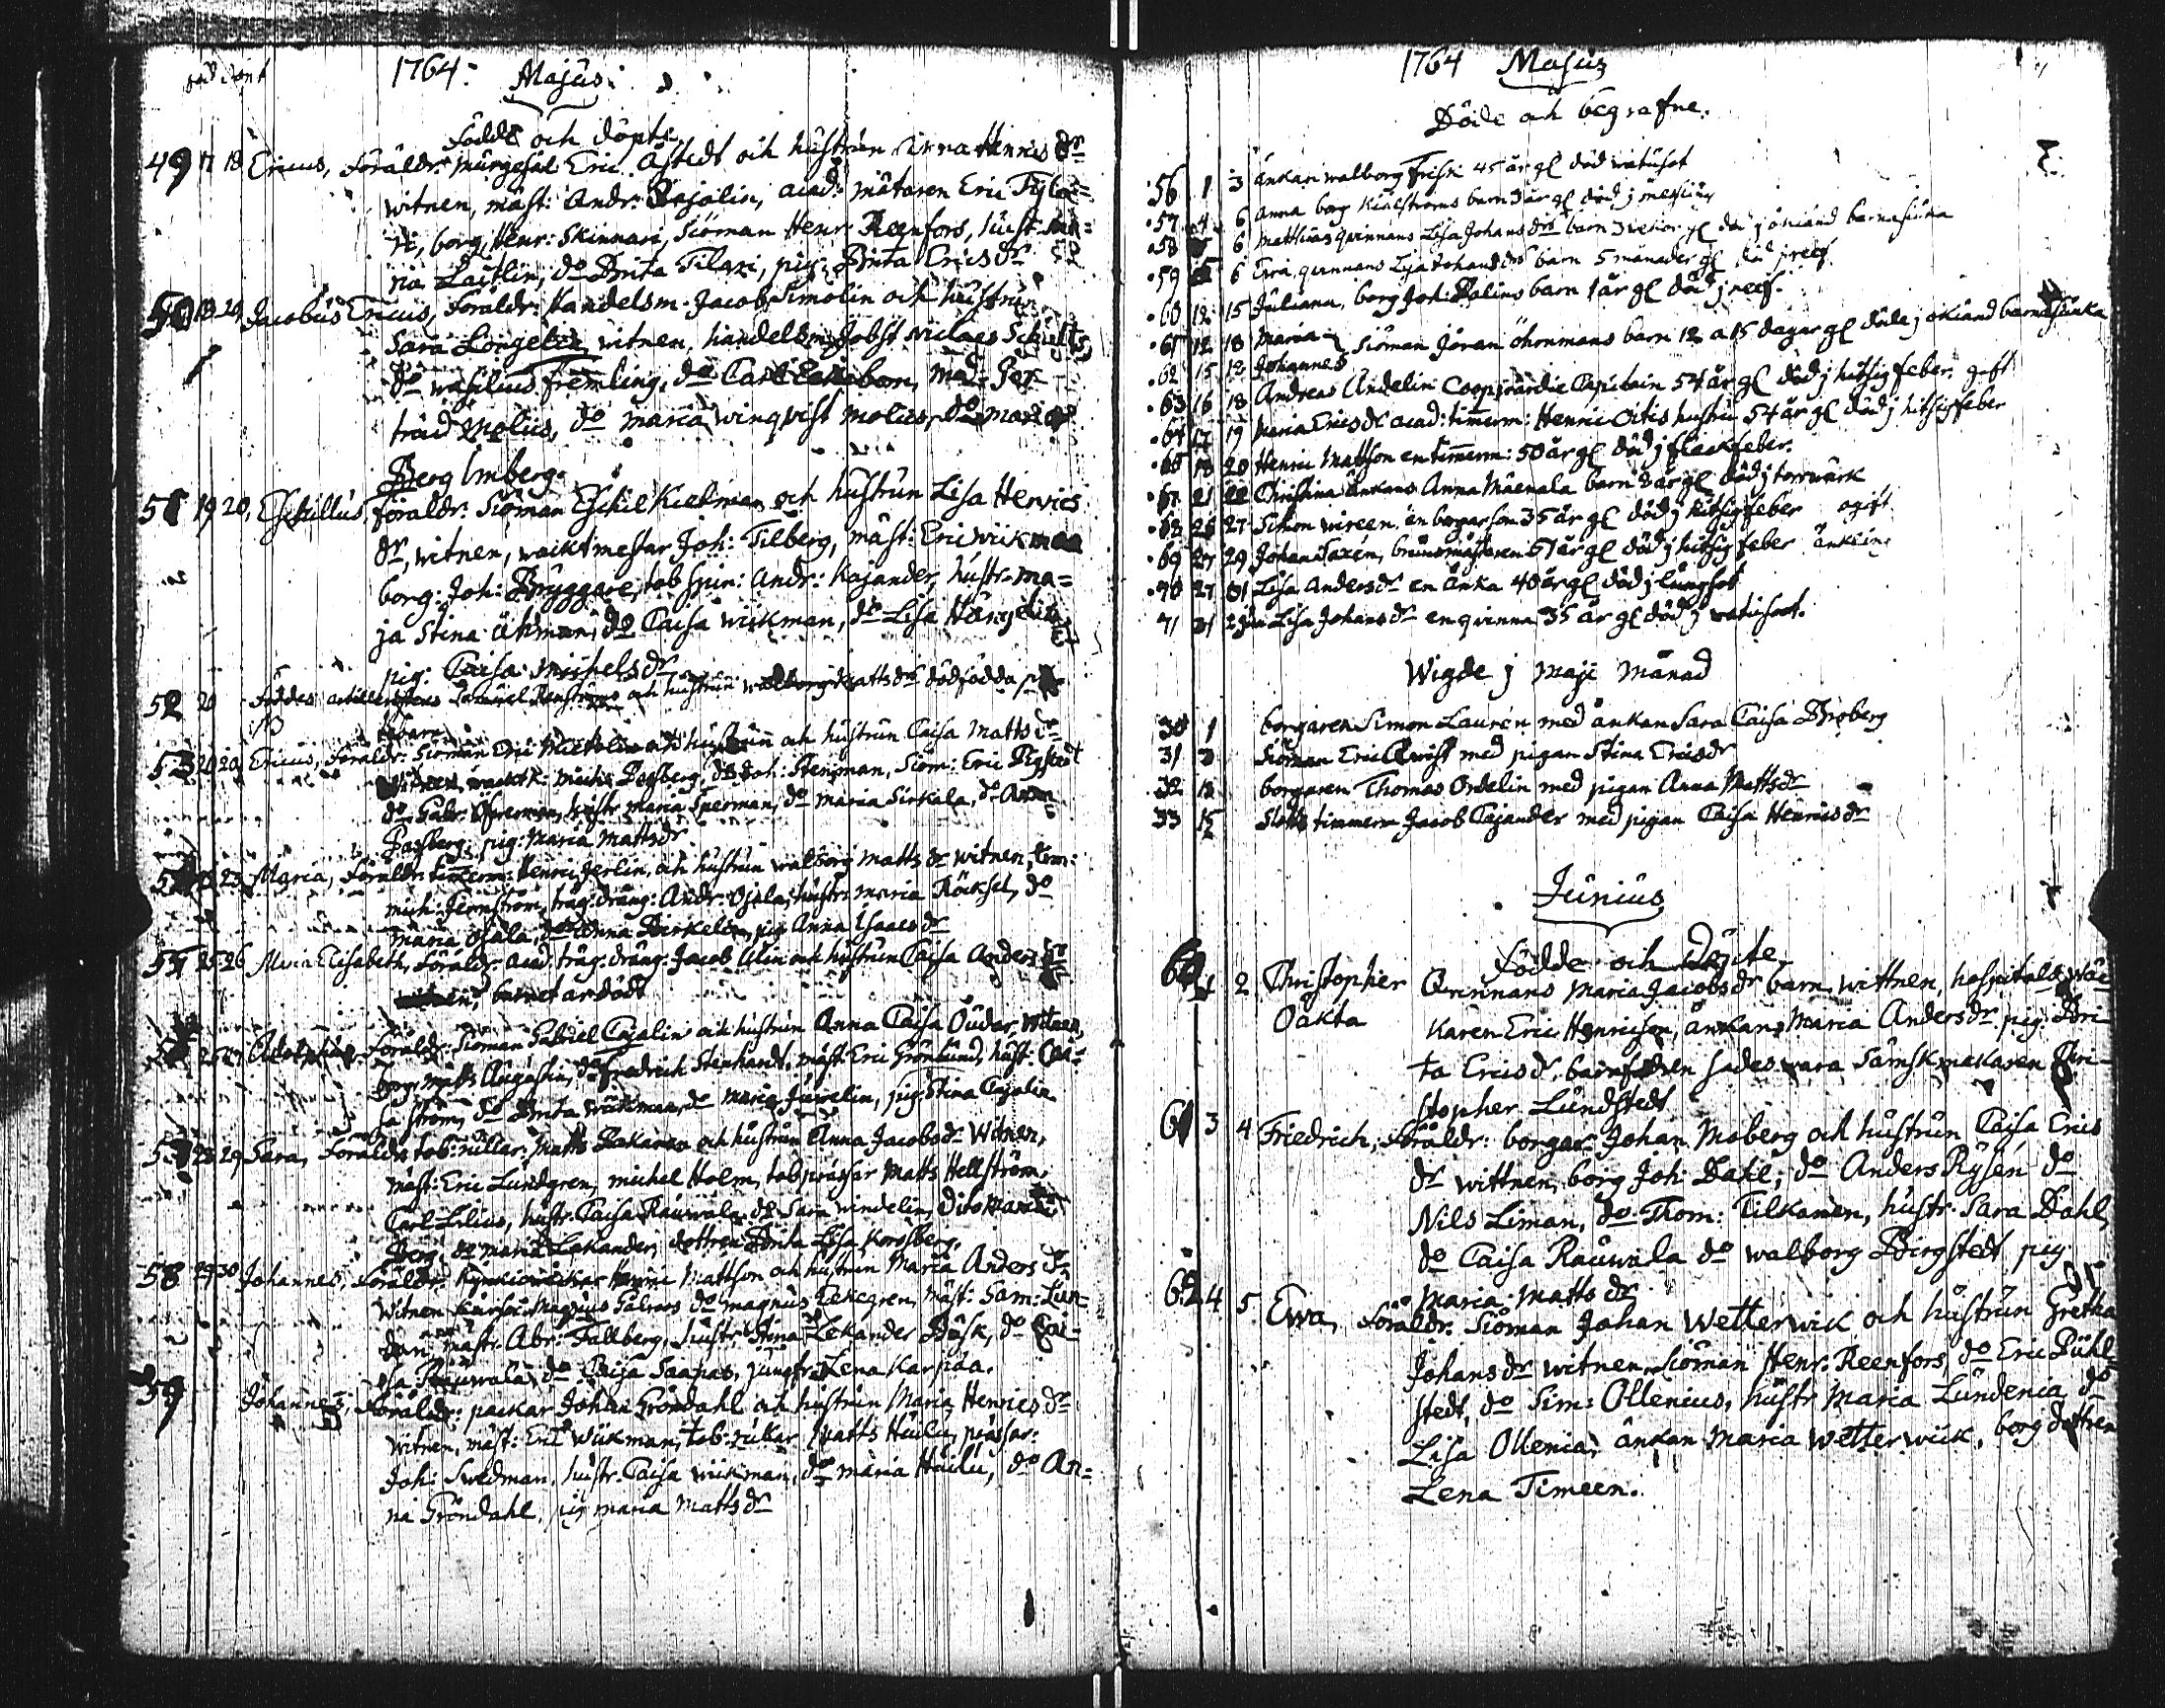 1764. Majus.
född döpt
Födde och döpte.
49 17 18 Ericus, Föräldr: murgesäl Eric Åstedt och hustrun Anna Henrics dr
witnen, mäst: Andr: Rajalin, acad: mätaren Eric
ri, borg, Henr: Skinnari, Siöman Henr: Reenfors, hust: Ma=
ria Laitlin, do Brita Tilari, pig: Brita Erics dr
50 19 20 Jacobus Ericus, Föräldr: Handelsm. Jacob Simolin och hustrun
Sara witnen, handelsm Jobst Niclaes Schultz,
do Wasilius Fremling, do Carl mad: Ger=
trud Molius, do Maria Winqvist Molius, do Maria
Berg Imberg.
51 19 20, Eschillus, Föräldr: Siöman Eschil Kielman och hustrun Lisa Henrics
dr, witnen, wacktmestar Joh: Tilberg, mäst: Eric Wiikman
borg: Joh: Bryggare, tob spin: Andr: Kajander, hustr: Ma=
ja Stina Åkman, do Caisa Wiikman, do Lisa
pig: Caisa Michels dr
52 20 Föddes Samuel och hustrun Walborg Matts dr dödfödda
53 20 20 Ericus, Föräldr: Siöman Eric och hustrun Caisa Matts dr
Michel Pasberg, do Joh: Stenman, Siöm: Eric
do Gabr. hustr Maria Sperman, do Maria Sirkala, do Anna
Passberg, pig: Maria Matts dr
23 Maria, Föräldr: timerm: Henric Jerlin, och hustrun Walborg Matts dr witnen, tim:
mich: Jernström, träg: dräng: Andr: Ojala, hustr: Maria Röcksel, do
Maria Ojala, do Anna pig Anna Isaacs dr
55 25 26 Maria Elisabeth, Föräldr: acad. träg: dräng. Jacob Ulin och hustrun Caisa Anders dr
barnet är dödt
26 27 Adolphus Föräldr: Siöman Gabriel Cajalin och hustrun Anna Caisa Öuder, Witnen,
borg: Matts Augustin, do Fredrich Stenhardt, mäst: Eric Grönlund, hust: Cai=
sa Ström, do Brita Wiikman, do Maria Juwelin, pig: Stina Cajalin
57 28 29 Sara, Föräldr: tob: rullar: Matts och hustrun Anna Jacobs dr Witnen,
mäst: Eric Lundgren, michel Holm, tob prässar Matts Hellström,
Carl Lilius, hustr: Caisa Rauwala, do Sara Windelin, Dito Maria
Berg, do Maria Lekander, dottren Brita Lisa Korsberg.
58 29 30 Johannes, Föräldr: Henric Mattson och hustrun Maria Anders dr
Witnen Magnus do Magnus Eekegren, mäst: Sam: Lun=
dan, mästr. Abr: Fallberg, hustr: Stina Lekander Bäsk, do Cai=
sa Rauwala, do Caisa Saapas, jungfr: Lena Karpåa.
59 Johannes, Föräldr: packar Johan Gröndahl och hustrun Maria Henrics dr
Witnen, mäst: Eric Wiikman, tob: rullar Matts Hailu, prässar:
Joh: Swedman, hustr. Caisa Wiikman, do Maria Hailu, do An=
na Gröndahl, pig Maria Matts dr
1764 Majus
Döde och begrafne.
56 1 3 änkan Walborg Frisk 45 år gl död i watusot
57 4 6 Anna borg barn 3 år gl död j
58 6 Matthias qvinnans Lisa Johans dr barn 3 wekor gl död j okiänd barnasiuka
59 6 Ewa, qvinnans Lisa Johans dr barn 5 månader gl död j
60 12 15 Juliana, borg Joh: Bolins barn 1 år gl död j
61 12 18 Maria
62 15 18 Johannes Siöman Jöran Öhrnmans barn 12 a 15 dagar gl döde j okiänd barnasiuka
63 16 18 Andreas Andelin Cooparardie Capitain 54 år gl död j hitsig feber. gift
64 17 19 Maria Erics dr acad: timerm: Henric hustru 54 år gl död j hitsig feber
65 18 20 Henric Mattson en timerm: 50 år gl död j fläckfeber.
67 21 22 Christina änkans Anna Mäenala barn 2 år gl död j torrwärk
68 26 27 Simon Wireen, en borgarson 35 år gl död j hitsig feber ogift
69 27 29 Johan Taxén, brunsmästaren 51 år gl död j hitsig feber änkling
70 27 31 Lisa Anders dr en änka 40 år gl död j lungsot
71 31 2 jun Lisa Johans dr en qvinna 35 år gl död j watusoot.
Wigde j Maji Månad
30 1 borgaren Simon Laurén med änkan Sara Caisa Broberg
31 3 Siöman Eric Qwist med pigan Stina Erics dr
32 12 borgaren Thomas Ordelin med pigan Anna Matts dr
33 15 Slotts timmerm Jacob Cajander med pigan Caisa Henrics dr
Junius
Födde och Döpte
60 1 2 Christopher Qvinnans Maria Jacobs dr barn, wittnen, hospitals wäc
Oäkta karen Eric Henricson, änkan Maria Anders dr pig: Bri=
ta Erics dr, barnfadren sades wara Sämskmakaren Chri=
stopher Lundstedt
61 3 4 Friedrich, Föräldr: borgar Johan Moberg och hustrun Caisa Erics
dr wittnen, borg Joh: Dahl; do Anders Rysén do
Nils Liman, do Thom: Tilkanen, hustr. Sara Dahl,
do Caisa Rauwala do Walborg Bergstedt pig
Maria Matts dr
62 4 5 Ewa, Föräldr. Siöman Johan Wetterwick och hustrun Gretha
Johans dr witnen, Siöman Henr: Reenfors, do Eric Pühl=
stedt, do Sim: Ollenius, hustr Maria Lundenia do
Lisa Ollenia, änkan Maria Wetterwick, borg dottren
Lena Timeen.